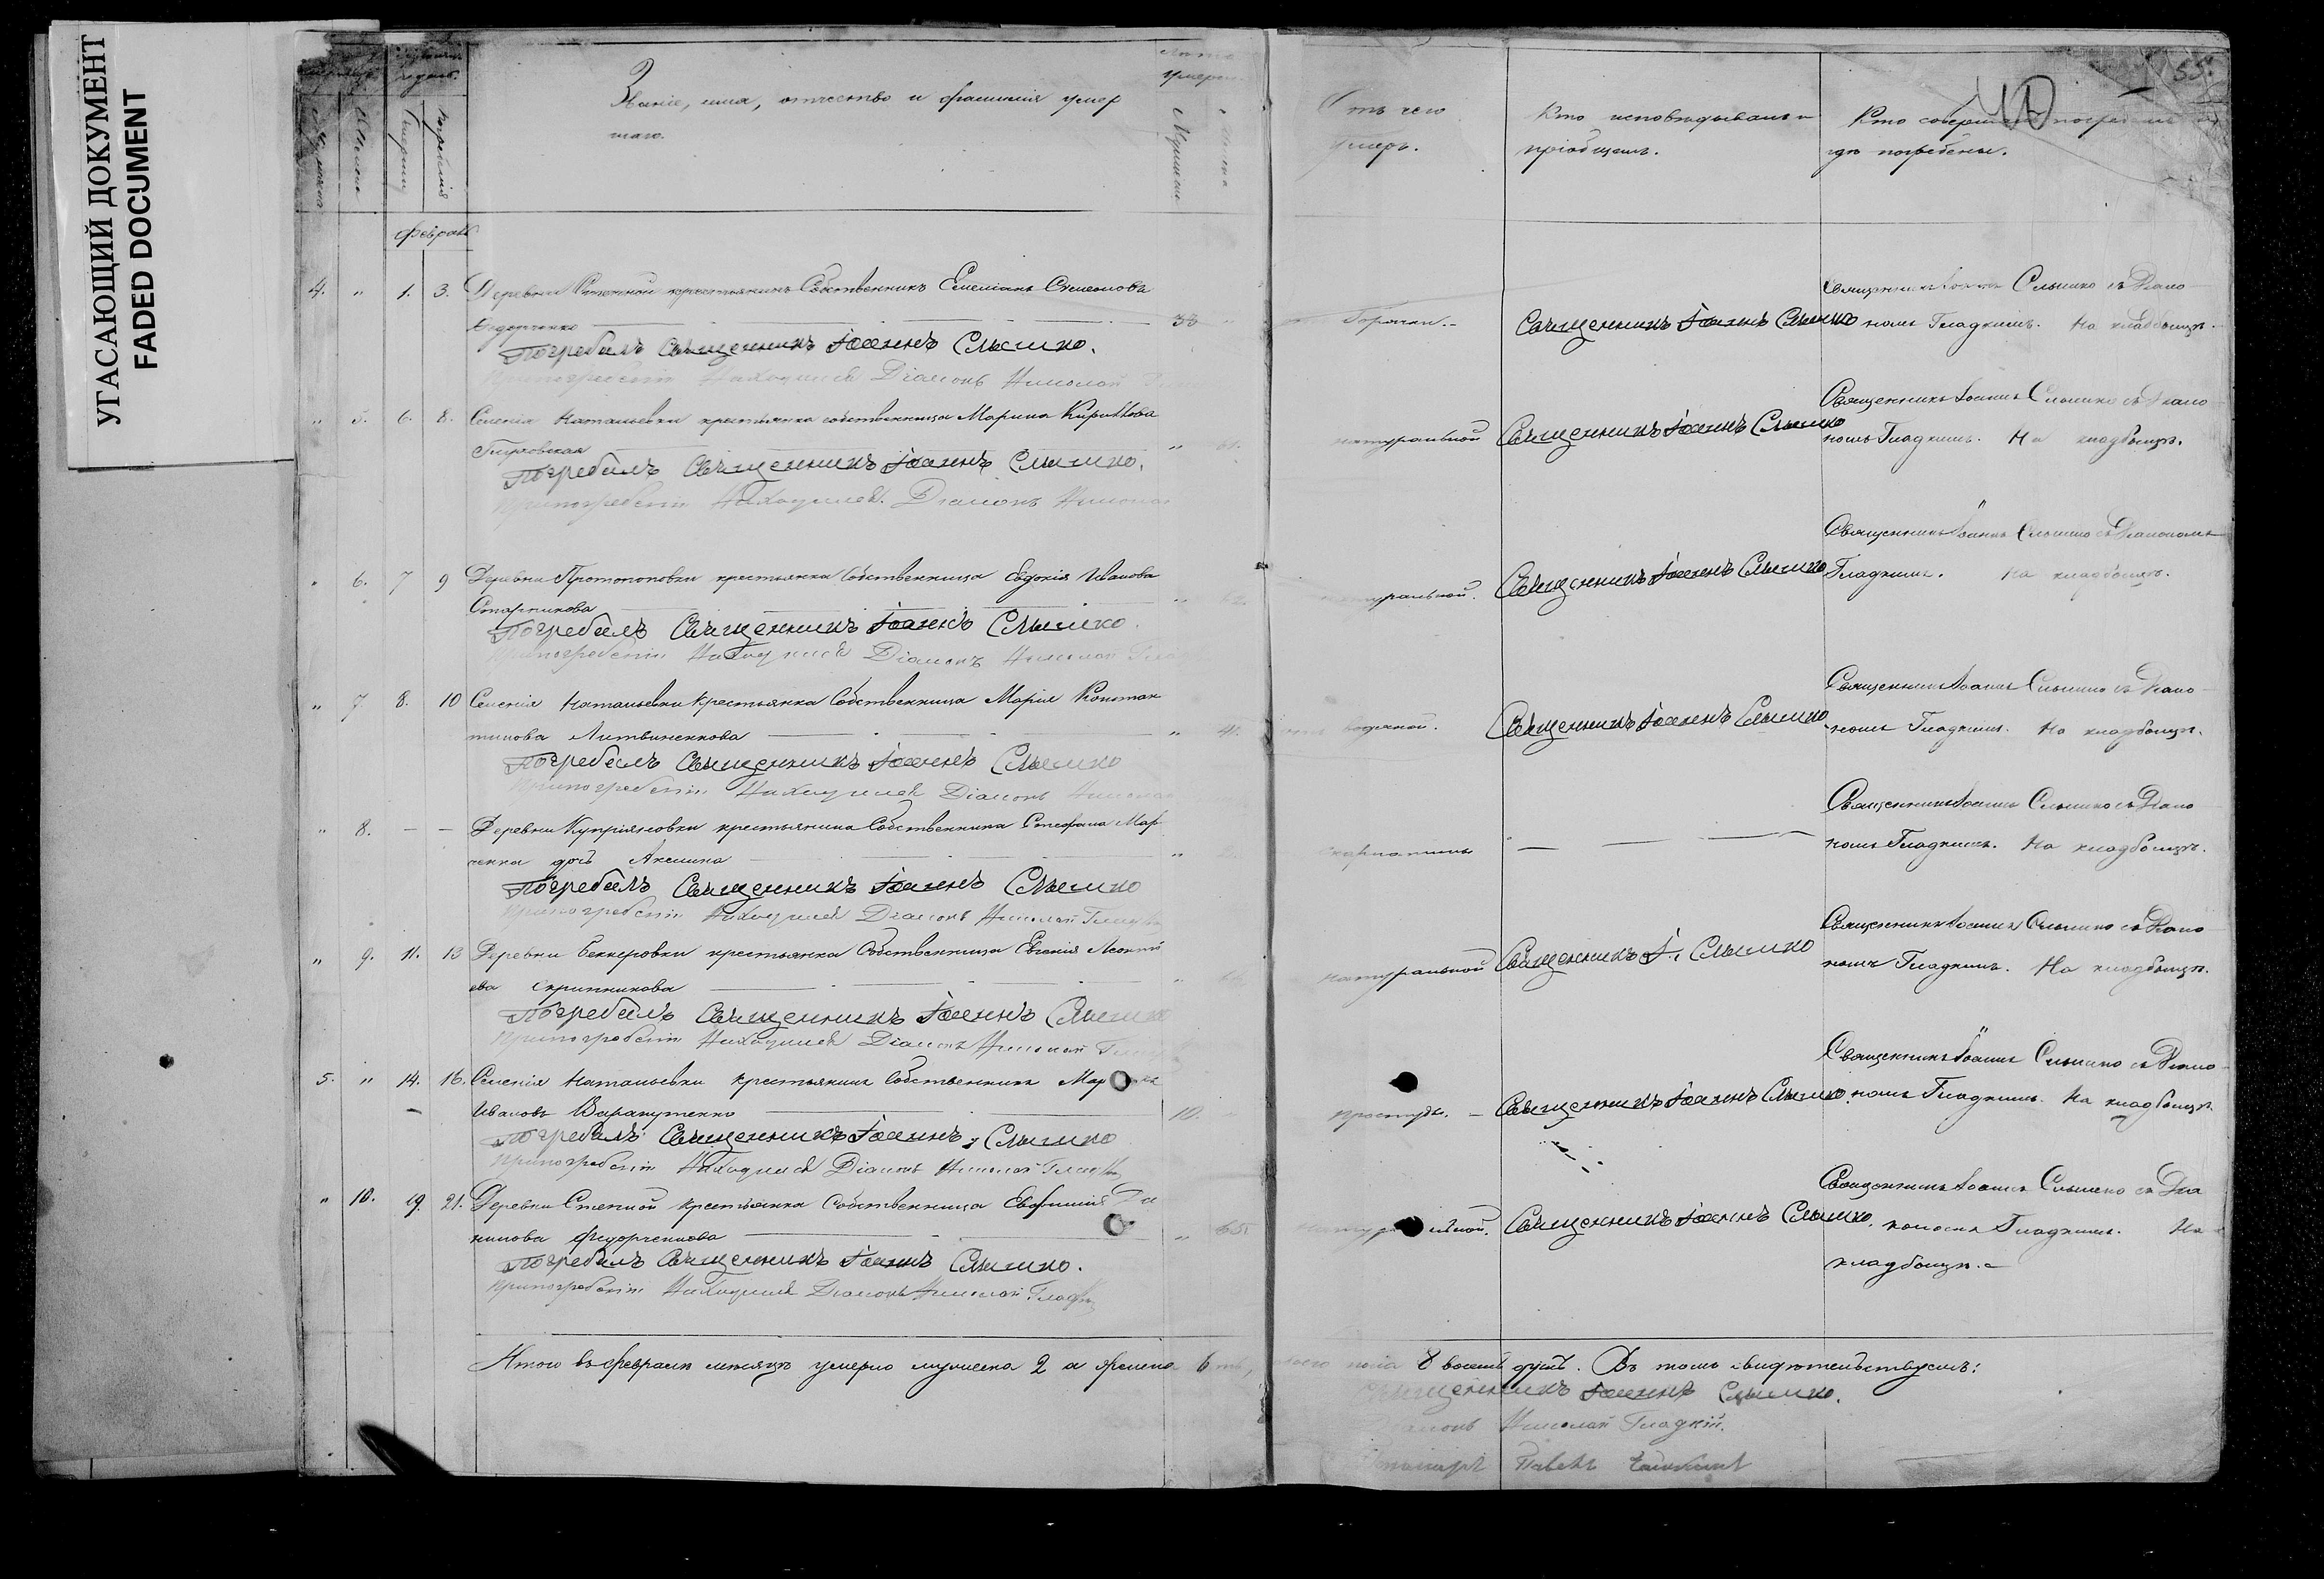 УГАСАЮЩИЙ ДОКУМЕНТ
FADED DOCUMENT
Званіе, имя, отчество и фамилія умер
шаго.
Отъ чего
умеръ.
Кто исповѣдывалъ и
пріобщалъ.
Кто совершалъ погребеніе и
гдѣ погребены.
55.
Февраль
4. " 1. 3. Деревни Степной крестьянинъ Собственникъ Емеліанъ Симеоновъ
Федорченко 38 Горячки. Священникъ Іоаннъ Слышко
Священникъ Іоаннъ Слышко съ Діако
номъ Гладкимъ. На кладбищѣ.
Погребалъ Священникъ Іоаннъ Слышко.
При погребеніи Находился Діаконъ Николай
" 5. 6. 8. Селенія Натальевки крестьянка собственница Марина Кириллова
" 61. натуральной Священникъ Іоаннъ Слышко
Священникъ Іоаннъ Слышко съ Діако
номъ Гладкимъ. На кладбищѣ.
Погребалъ Священникъ Іоаннъ Слышко.
При погребеніи Находился Діаконъ Николай
" 6. 7 9 Деревни Протопоповки крестьянка Собственница Евдокія Иванова
" натуральной. Священникъ Іоаннъ Слышко
Священникъ Іоаннъ Слышко съ Діакономъ
Гладкимъ. На кладбищѣ.
Погребалъ Священникъ Іоаннъ Слышко.
При погребеніи Находился Діаконъ Николай
" 7 8. 10 Селенія Натальевки крестьянка Собственница Марія Констан
тинова Литвиненкова " водяной. Священникъ Іоаннъ Слышко
Священникъ Іоаннъ Слышко съ Діако
номъ Гладкимъ. На кладбищѣ.
Погребалъ Священникъ Іоаннъ Слышко
При погребеніи Находился Діаконъ Николай
" 8. — — Деревни Купріяновки крестьянина Собственника Стефана Мар
ченка дочь Акилина " скарлатины
Священникъ Іоаннъ Слышко съ Діако
номъ Гладкимъ. На кладбищѣ.
Погребалъ Священникъ Іоаннъ Слышко
При погребеніи Находился Діаконъ Николай
" 9. 11. 13 Деревни Беккеровки крестьянка Собственница Евгенія Леонті
ева Скрипникова " натуральной Священникъ І. Слышко
Священникъ Іоаннъ Слышко съ Діако
номъ Гладкимъ. На кладбищѣ.
Погребалъ Священникъ Іоаннъ Слышко
При погребеніи Находился Діаконъ Николай
5. " 14. 16. Селенія Натальевки крестьянинъ Собственникъ
Ивановъ 10. простуды. Священникъ Іоаннъ Слышко.
Священникъ Іоаннъ Слышко съ Діако
номъ Гладкимъ На кладбищѣ
Погребалъ Священникъ Іоаннъ Слышко
При погребеніи Находился Діаконъ Николай
" 10. 19. 21. Деревни Степной крестьянка Собственница Евфимія
Федорченкова " 65 Священникъ Іоаннъ Слышко.
Священникъ Іоаннъ Слышко съ Діа
кономъ Гладкимъ. На
кладбищѣ.
Погребалъ Священникъ Іоаннъ Слышко.
При погребеніи Находился Діаконъ Николай
Итого въ февралѣ мѣсяцѣ умерло мужеска 2 а женска 6 пола 8 восемь душъ. Въ томъ свидѣтельствуемъ:
Священникъ Іоаннъ Слышко.
Діаконъ Николай Гладкій.
Павелъ